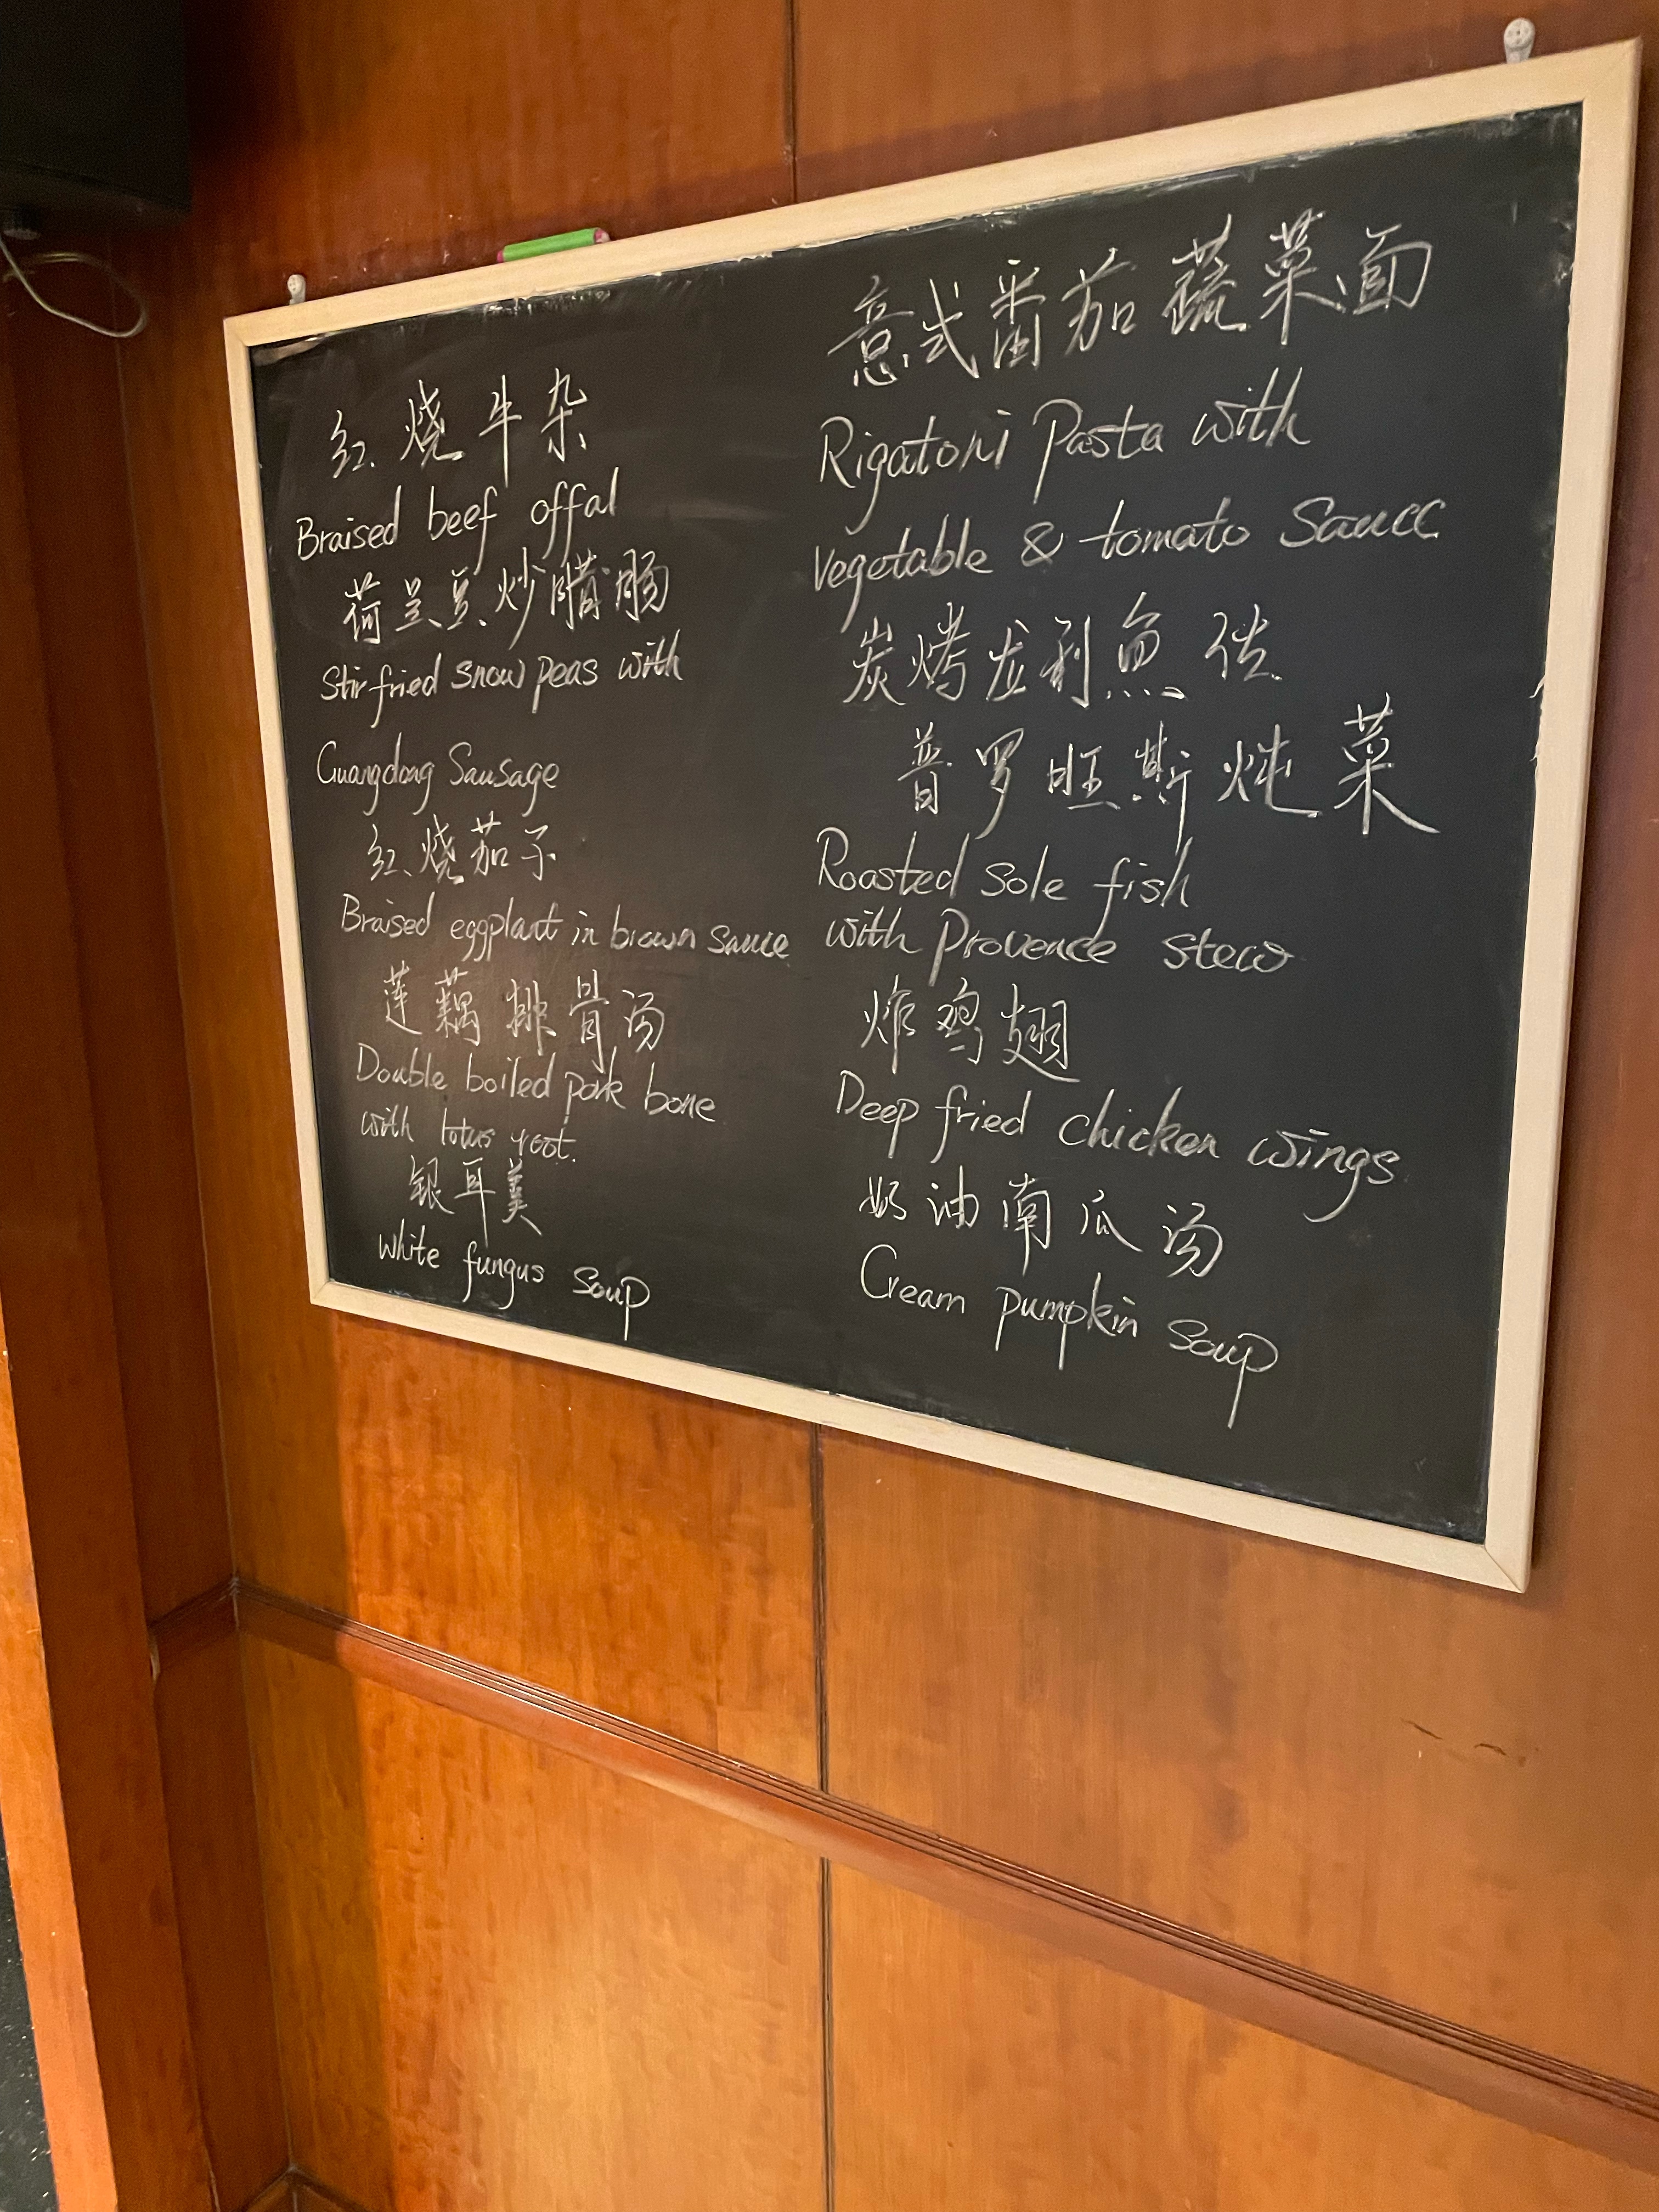 红烧牛杂
Braised beef offal
荷兰豆炒腊肠
Stir fried snow peas with
Guangdong Sausage
红烧茄子
Braised eggplant in brown sauce
莲藕排骨汤
Double boiled pork bone
with lotus root.
银耳羹
white fungus soup
意式番茄蔬菜面
Rigatoni Pasta with
Vegetable & tomato Sauce
炭烤龙利鱼伴
普罗旺斯炖菜
Roasted Sole fish
with Provence stew
炸鸡翅
Deep fried chicken wings
奶油南瓜汤
Cream pumpkin soup